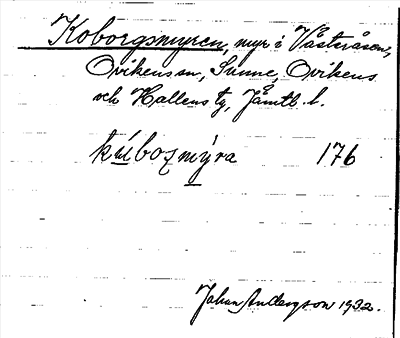 Koborgsmyren, myr i Västeråsen,
Ovikens sn, Sunne, Ovikens
och Hallens tg, Jämtl. l.
kúbozmýra 176
Johan Andersson 1932.